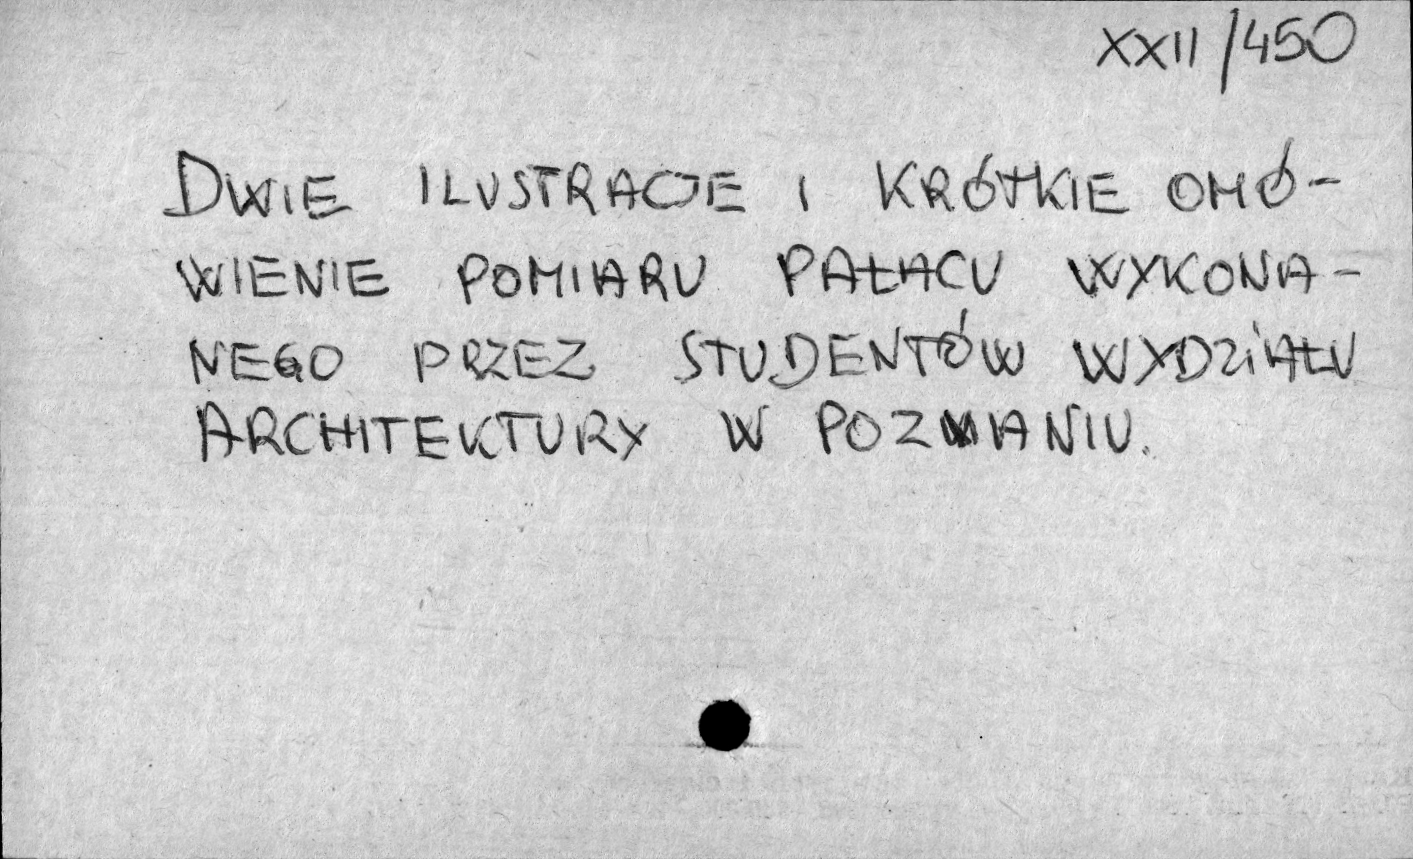 XXII/450
DWIE ILUSTRACJE I KRÓTKIE OMÓ-
WIENIE POMIARU PAŁACU WYKONA-
NEGO PRZEZ STUDENTÓW WYDZIAŁU
ARCHITEKTURY W POZNANIU.